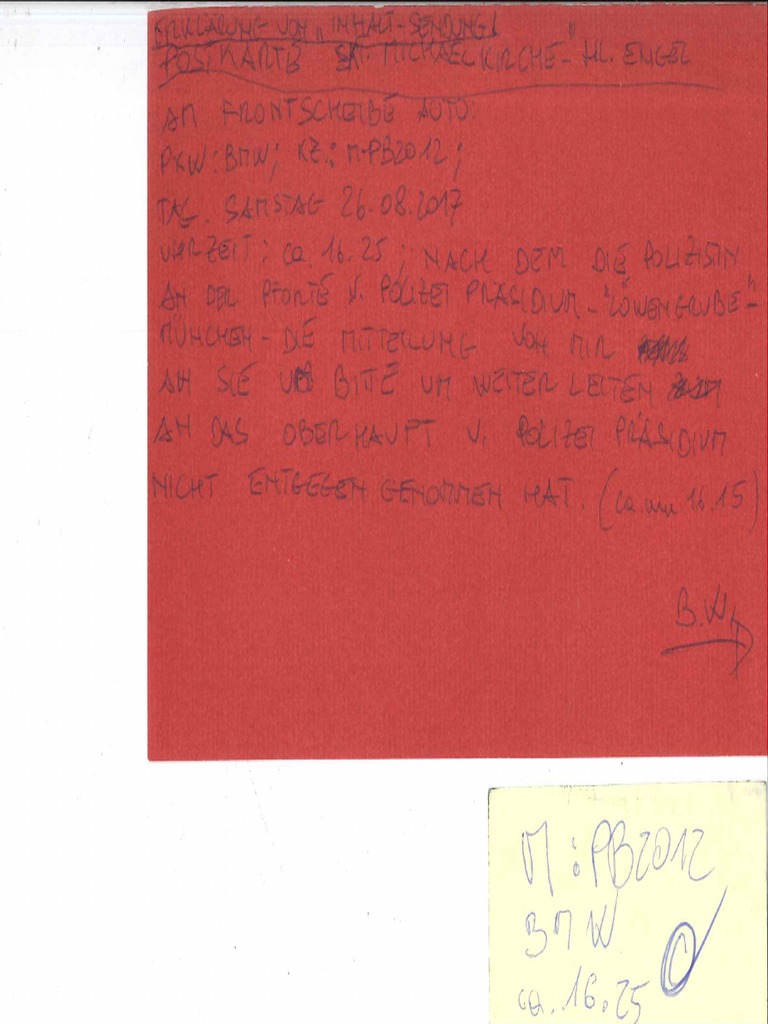 ERKLÄRUNG VON "INHALT-SENDUNG"
POSTKARTE SAT. MICHAEL KIRCHE - HL. ENGEL
AN FRONTSCHEIBE AUTO:
PKW: BMW; KZ.: M-PB2012;
TAG. SAMSTAG 26.08.2017
UHRZEIT: ca. 16.25; NACH DEM DIE POLIZISTIN
AN DER PFORTE V. POLIZEI PRÄSIDIUM - "LÖWENGRUBE" -
MÜNCHEN - DIE MITTEILUNG VON MIR
AN SIE BITTE UM WEITER LEITEN
AN DAS OBERHAUPT V. POLIZEI PRÄSIDIUM
NICHT ENTGEGEN GENOMMEN HAT. (ca. um 16.15)
B.W.
M: PB2012
BMW
ca. 16.25